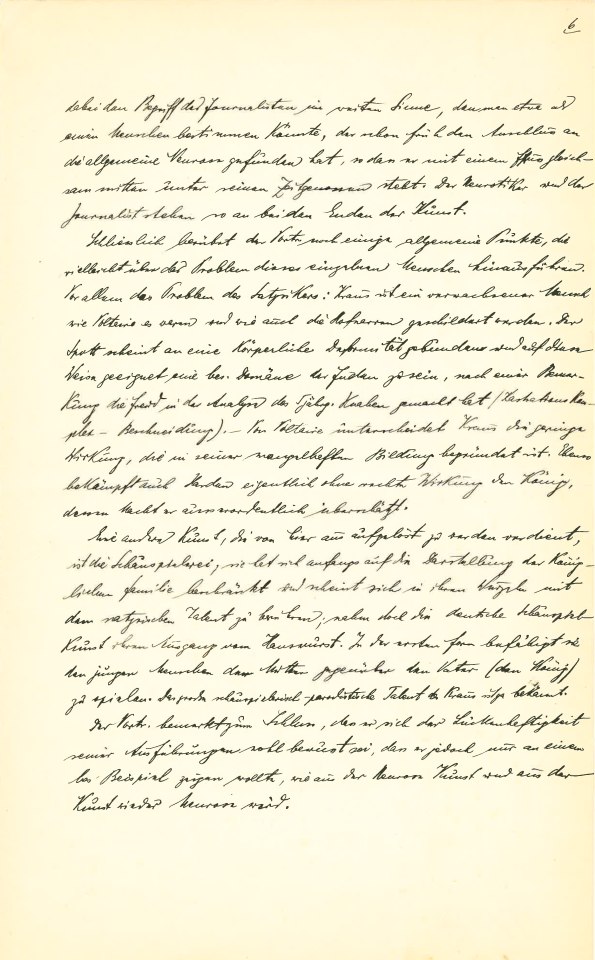 6
dabei den Begriff des Journalisten im weiten Sinne, den man etwa als
einen Menschen bestimmen könnte, der schon früh den Anschluss an
die allgemeine Neurose gefunden hat, so dass er mit einem Fuss gleich-
sam mitten unter seinen Zeitgenossen steht. Der Neurotiker und der
Journalist stehen so an beiden Enden der Kunst.
Schliesslich berührt der Vortr. noch einige allgemeine Punkte, die
vielleicht über das Problem dieses einzelnen Menschen hinausführen.
Vor allem das Problem des Satyrikers: Kraus ist ein verwachsener Mensch
wie Voltaire es waren und wie auch die Hofnarren geschildert werden. Der
Spott scheint an eine körperliche Deformität gebunden und auf diese
Weise geeignet eine bes. Domäne der Juden zu sein, nach einer Bemer-
kung die Freud in der Analyse des 5jährg. Knaben gemacht hat (Kastrations Kom-
plex - Beschneidung). - Von Voltaire unterscheidet Kraus die geringe
Wirkung, die in seiner mangelhaften Bildung begründet ist. Ebenso
bekämpft auch Harden eigentlich ohne rechte Wirkung den König,
dessen Macht er ausserordentlich überschätzt.
Eine andere Kunst, die von hier aus aufgelöst zu werden verdient,
ist die Schauspielerei, sie hat sich anfangs auf die Darstellung der König-
lichen Familie beschränkt und scheint sich in ihren Wurzeln mit
dem satyrischen Talent zu berühren; nahm doch die deutsche Schauspiel-
kunst ihren Ausgang vom Hanswurst. In der ersten Form befähigt sie
den jungen Menschen den gegenüber dem Vater (dem König)
zu spielen. Das grosse schauspielerisch-parodistische Talent des Kraus ist ja bekannt.
Der Vortr. bemerkt zum Schluss, dass er sich der Lückenhaftigkeit
seiner Ausführungen wohl bewusst sei, dass er jedoch nur an einem
bes. Beispiel zeigen wollte, wie aus der Neurose Kunst und aus der
Kunst wieder Neurose wird.